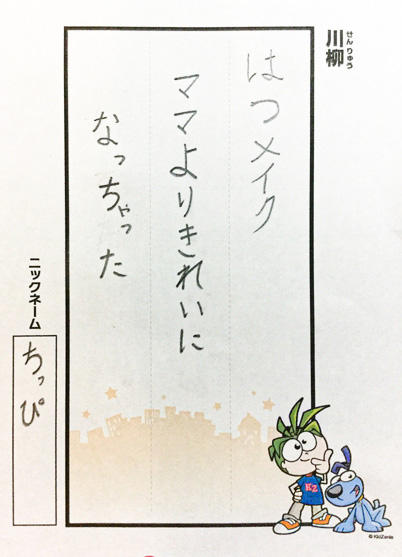 川柳
せんりゅう
はつメイク
ママよりきれいに
なっちゃった
ニックネーム
ちっぴ
KZ
© KidZania